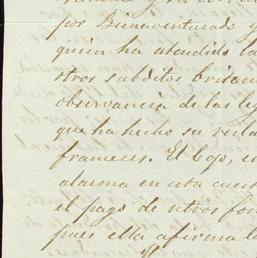 por Bienaventurado y
quien ha atendido la
otros subditos britan
observancia de las le
que ha hecho su recla
franceses. El Cop, e
alarma en esta cues
el pago de otros fon
pues ella afirma l